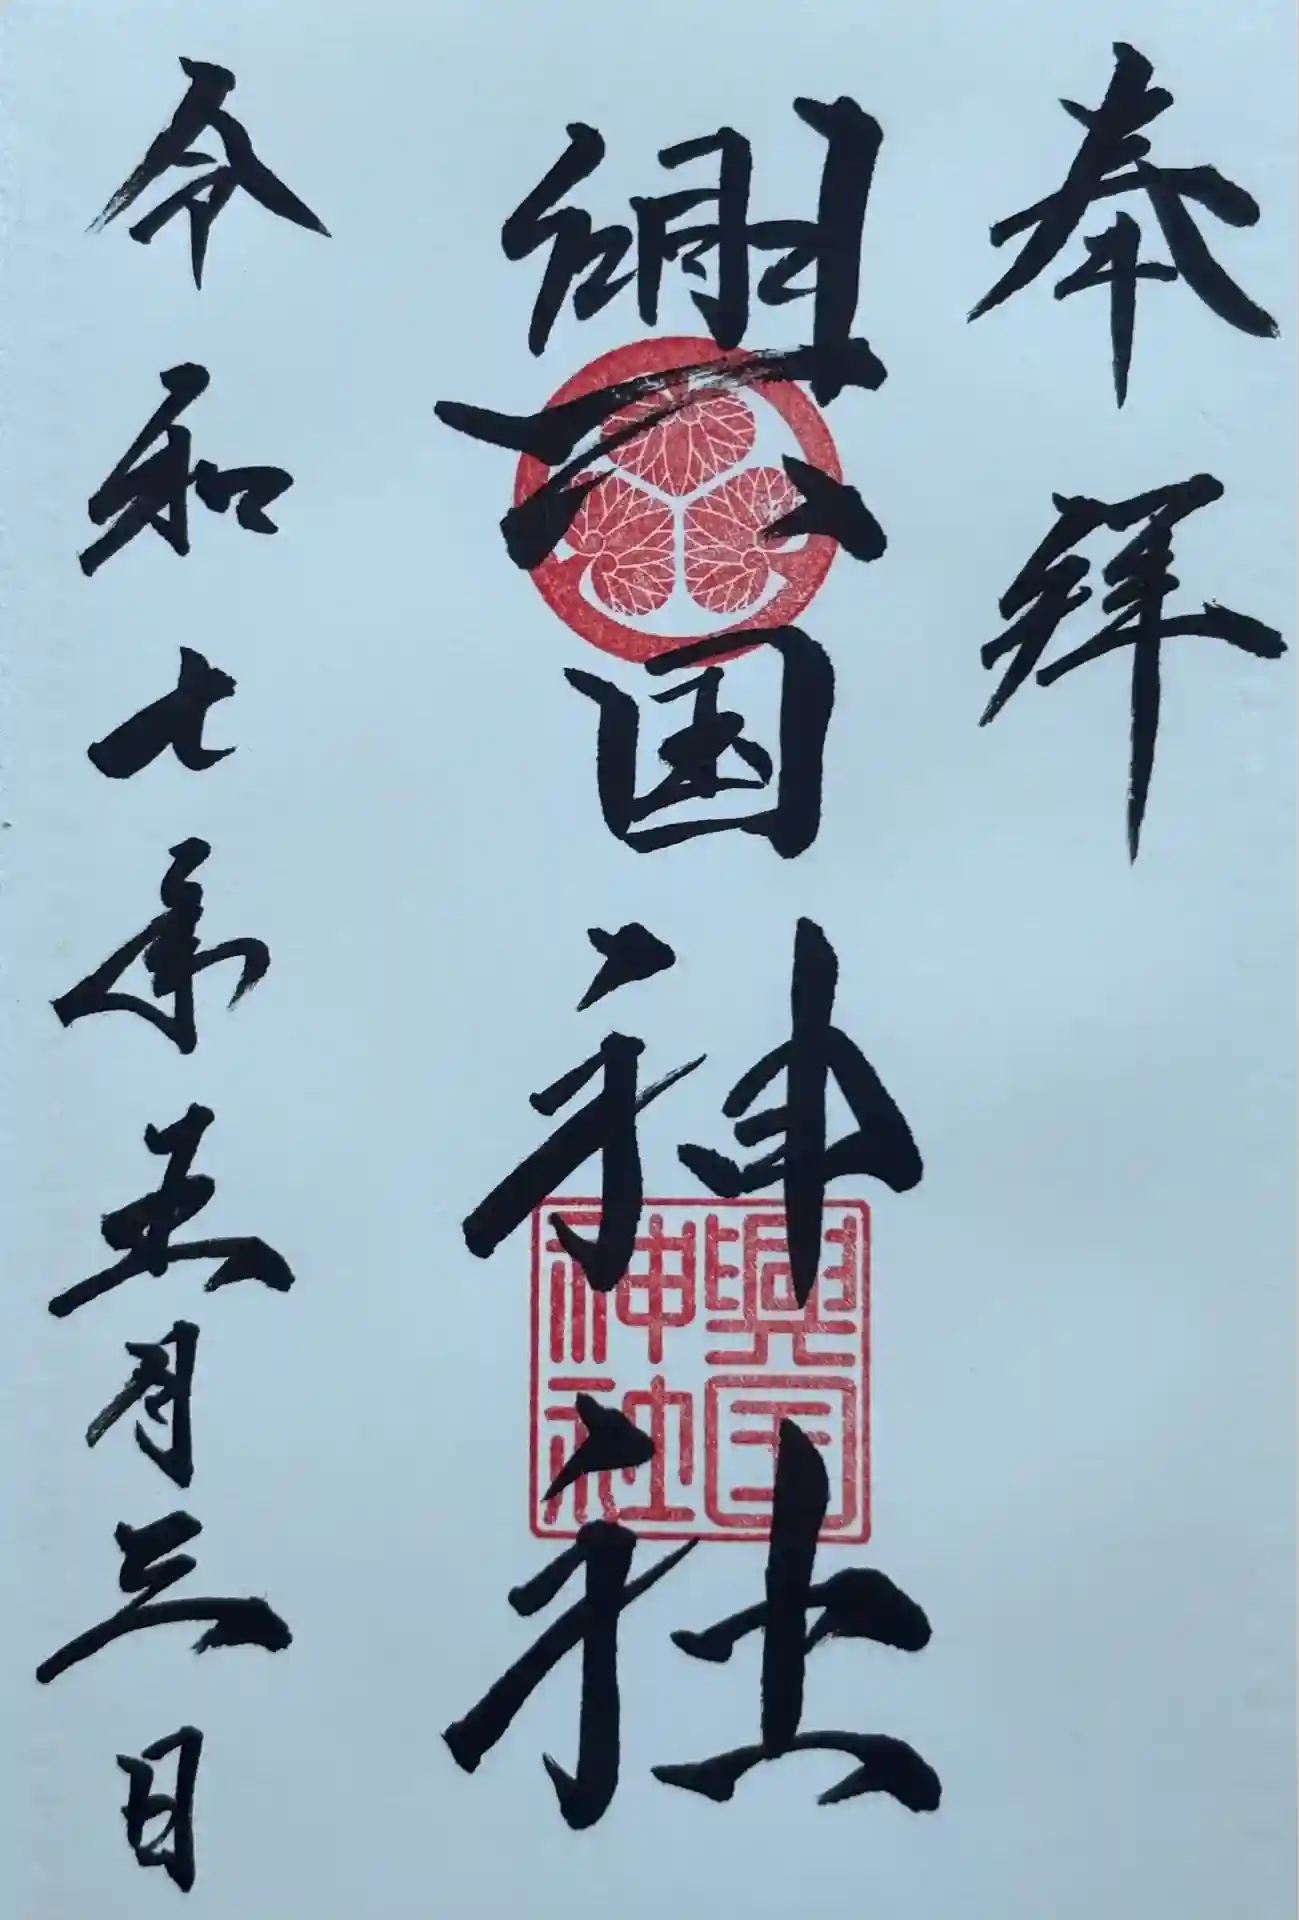 奉拝
興国神社
興国
神社
令和七年五月三日